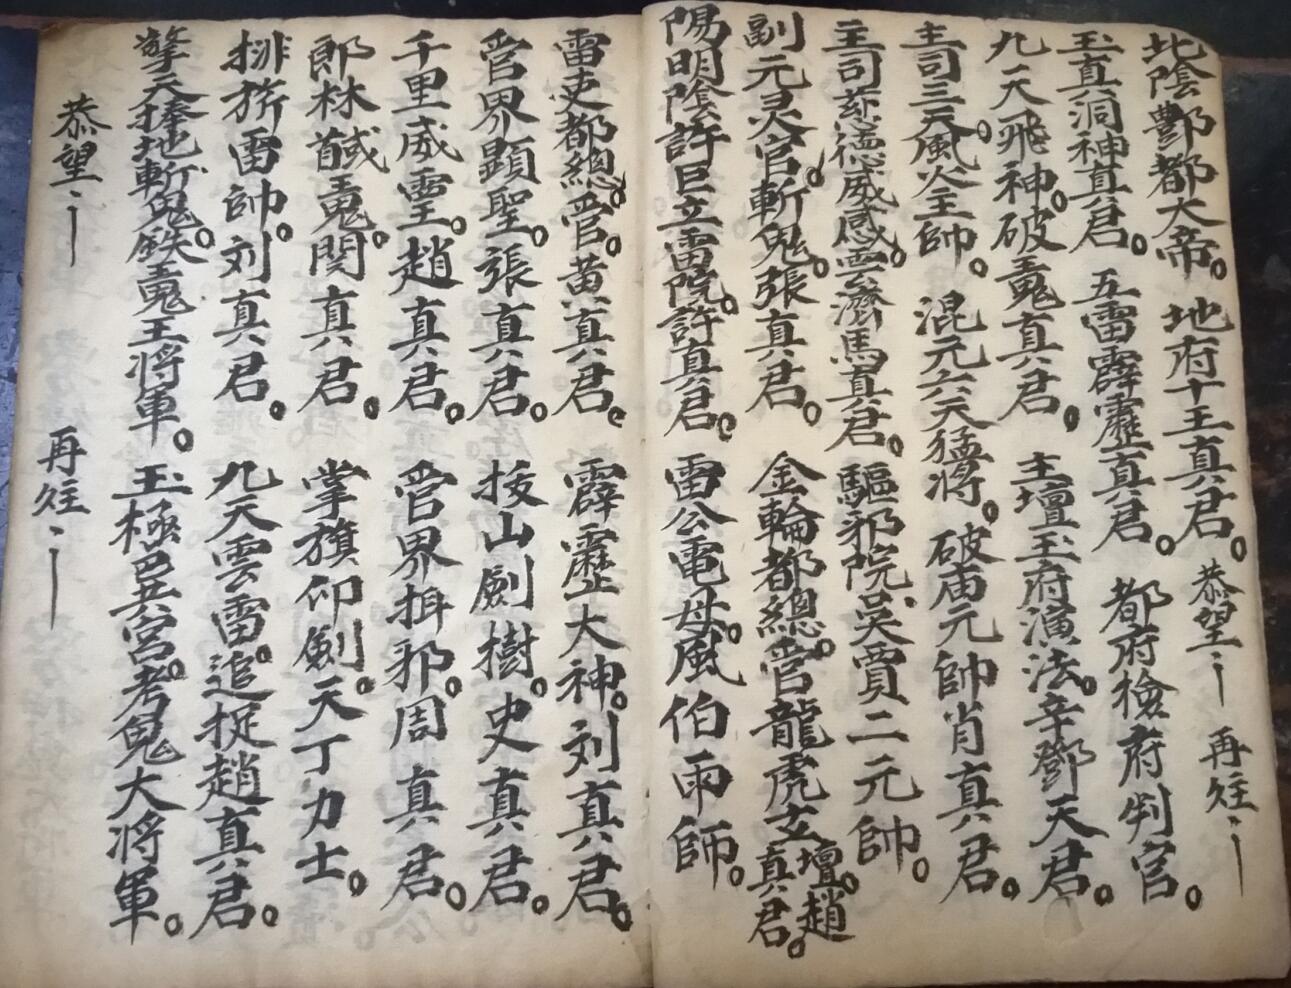 北陰酆都大帝。地府十王真君。恭望
再炷
玉真洞神真君。五雷霹靂真君。都府檢府判官。
九天飛神。破鬼真君。主壇玉府演法。辛鄧天君。
主司三天風火主帥。混元六天猛将。破庙元帥肖真君。
主司慈德威感。雲濟馬真君。驅邪院吳賈二元帥。
副元灵官。斬鬼張真君。金輪都總管龍虎玄壇。趙真君。
陽明陰許巨立雷院。許真君。雷公電母。風伯雨師。
雷吏都總管。黄真君。霹靂大神。刘真君。
管界顯聖。張真君。拔山劍樹。史真君。
千里威靈。趙真君。管界揖邪。周真君。
郎林馘鬼。関真君。掌旗仰劍。天丁力士。
排㧪雷帥。刘真君。九天雲雷。追捉趙真君。
擎天捧地斬鬼。鉄鬼王将軍。玉極皂兵宮。考鬼大将軍。
恭望
再炷